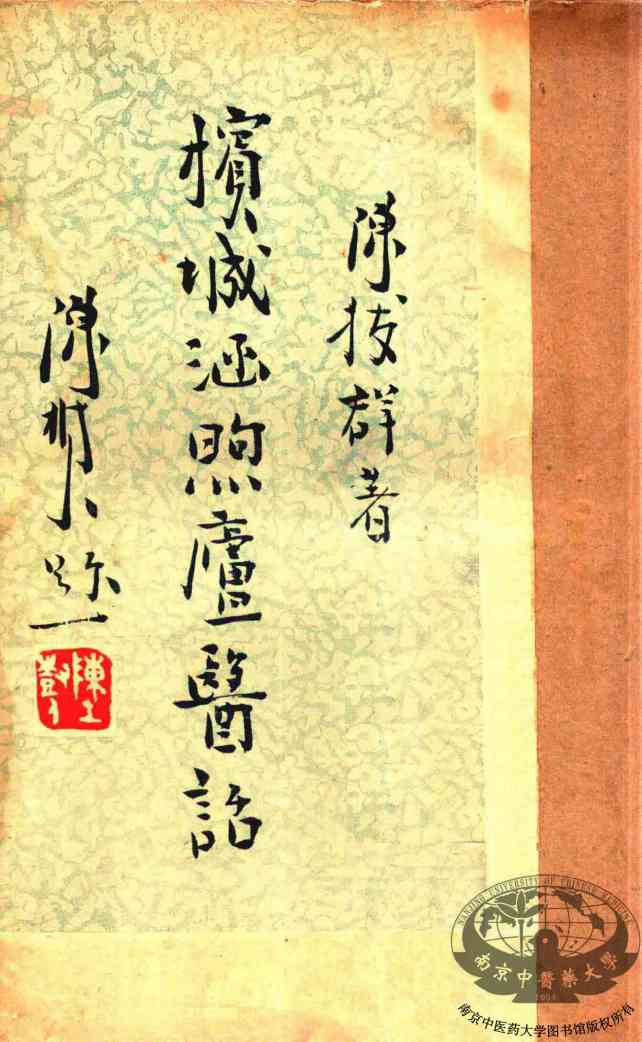 陳拔群著
檳城涵煦廬醫話
陳樹人題
陳樹人
NANJING UNIVERSITY OF CHINESE MEDICINE
南京中醫藥大學
1954
南京中医药大学图书馆版权所有